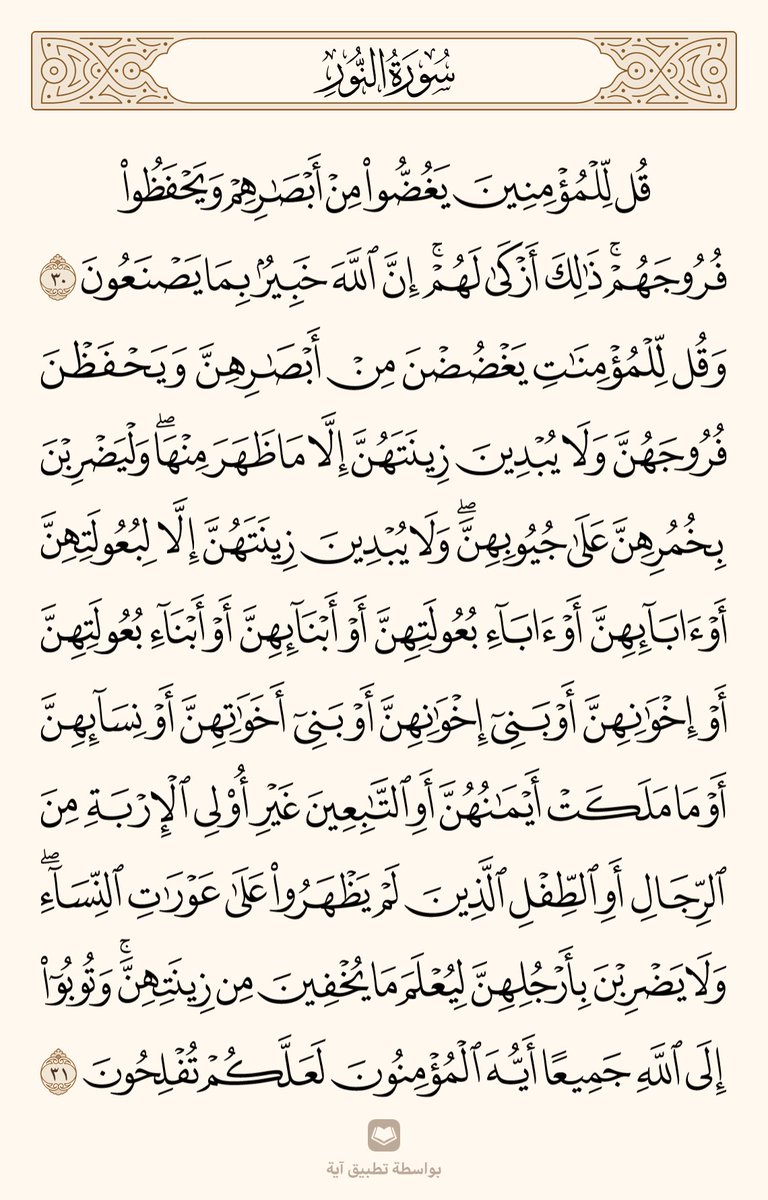 سُورَةُ النُّورِ
قُل لِّلْمُؤْمِنِينَ يَغُضُّوا۟ مِنْ أَبْصَـٰرِهِمْ وَيَحْفَظُوا۟
فُرُوجَهُمْ ۚ ذَٰلِكَ أَزْكَىٰ لَهُمْ ۚ إِنَّ ٱللَّهَ خَبِيرٌۢ بِمَا يَصْنَعُونَ ٣٠
وَقُل لِّلْمُؤْمِنَـٰتِ يَغْضُضْنَ مِنْ أَبْصَـٰرِهِنَّ وَيَحْفَظْنَ
فُرُوجَهُنَّ وَلَا يُبْدِينَ زِينَتَهُنَّ إِلَّا مَا ظَهَرَ مِنْهَا ۖ وَلْيَضْرِبْنَ
بِخُمُرِهِنَّ عَلَىٰ جُيُوبِهِنَّ ۖ وَلَا يُبْدِينَ زِينَتَهُنَّ إِلَّا لِبُعُولَتِهِنَّ
أَوْ ءَابَآئِهِنَّ أَوْ ءَابَآءِ بُعُولَتِهِنَّ أَوْ أَبْنَآئِهِنَّ أَوْ أَبْنَآءِ بُعُولَتِهِنَّ
أَوْ إِخْوَٰنِهِنَّ أَوْ بَنِىٓ إِخْوَٰنِهِنَّ أَوْ بَنِىٓ أَخَوَٰتِهِنَّ أَوْ نِسَآئِهِنَّ
أَوْ مَا مَلَكَتْ أَيْمَـٰنُهُنَّ أَوِ ٱلتَّـٰبِعِينَ غَيْرِ أُو۟لِى ٱلْإِرْبَةِ مِنَ
ٱلرِّجَالِ أَوِ ٱلطِّفْلِ ٱلَّذِينَ لَمْ يَظْهَرُوا۟ عَلَىٰ عَوْرَٰتِ ٱلنِّسَآءِ ۖ
وَلَا يَضْرِبْنَ بِأَرْجُلِهِنَّ لِيُعْلَمَ مَا يُخْفِينَ مِن زِينَتِهِنَّ ۚ وَتُوبُوٓا۟
إِلَى ٱللَّهِ جَمِيعًا أَيُّهَ ٱلْمُؤْمِنُونَ لَعَلَّكُمْ تُفْلِحُونَ ٣١
بواسطة تطبيق آية